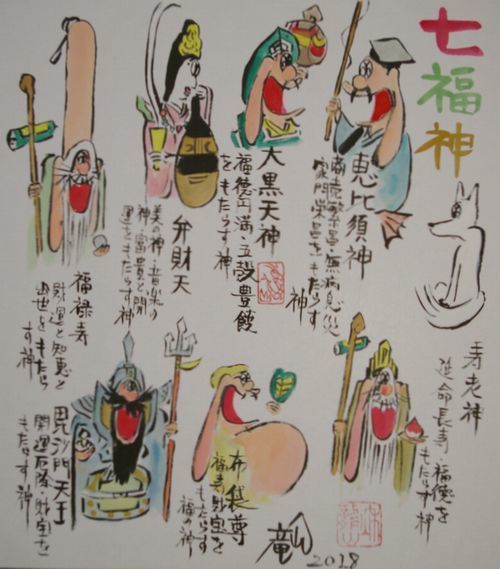 七福神
恵比須神
商売繁昌・無病息災
家内栄昌をもたらす
神
大黒天神
福徳円満・五穀豊饒
をもたらす神
弁財天
美の神・音楽の
神・富貴と開
運をもたらす神
福禄寿
財運と知恵と
出世をもたら
す神
寿老神
延命長寿・福徳を
もたらす神
布袋尊
福寿財宝を
もたらす
福の神
毘沙門天王
開運厄除・財宝を
もたらす神
竜
2018